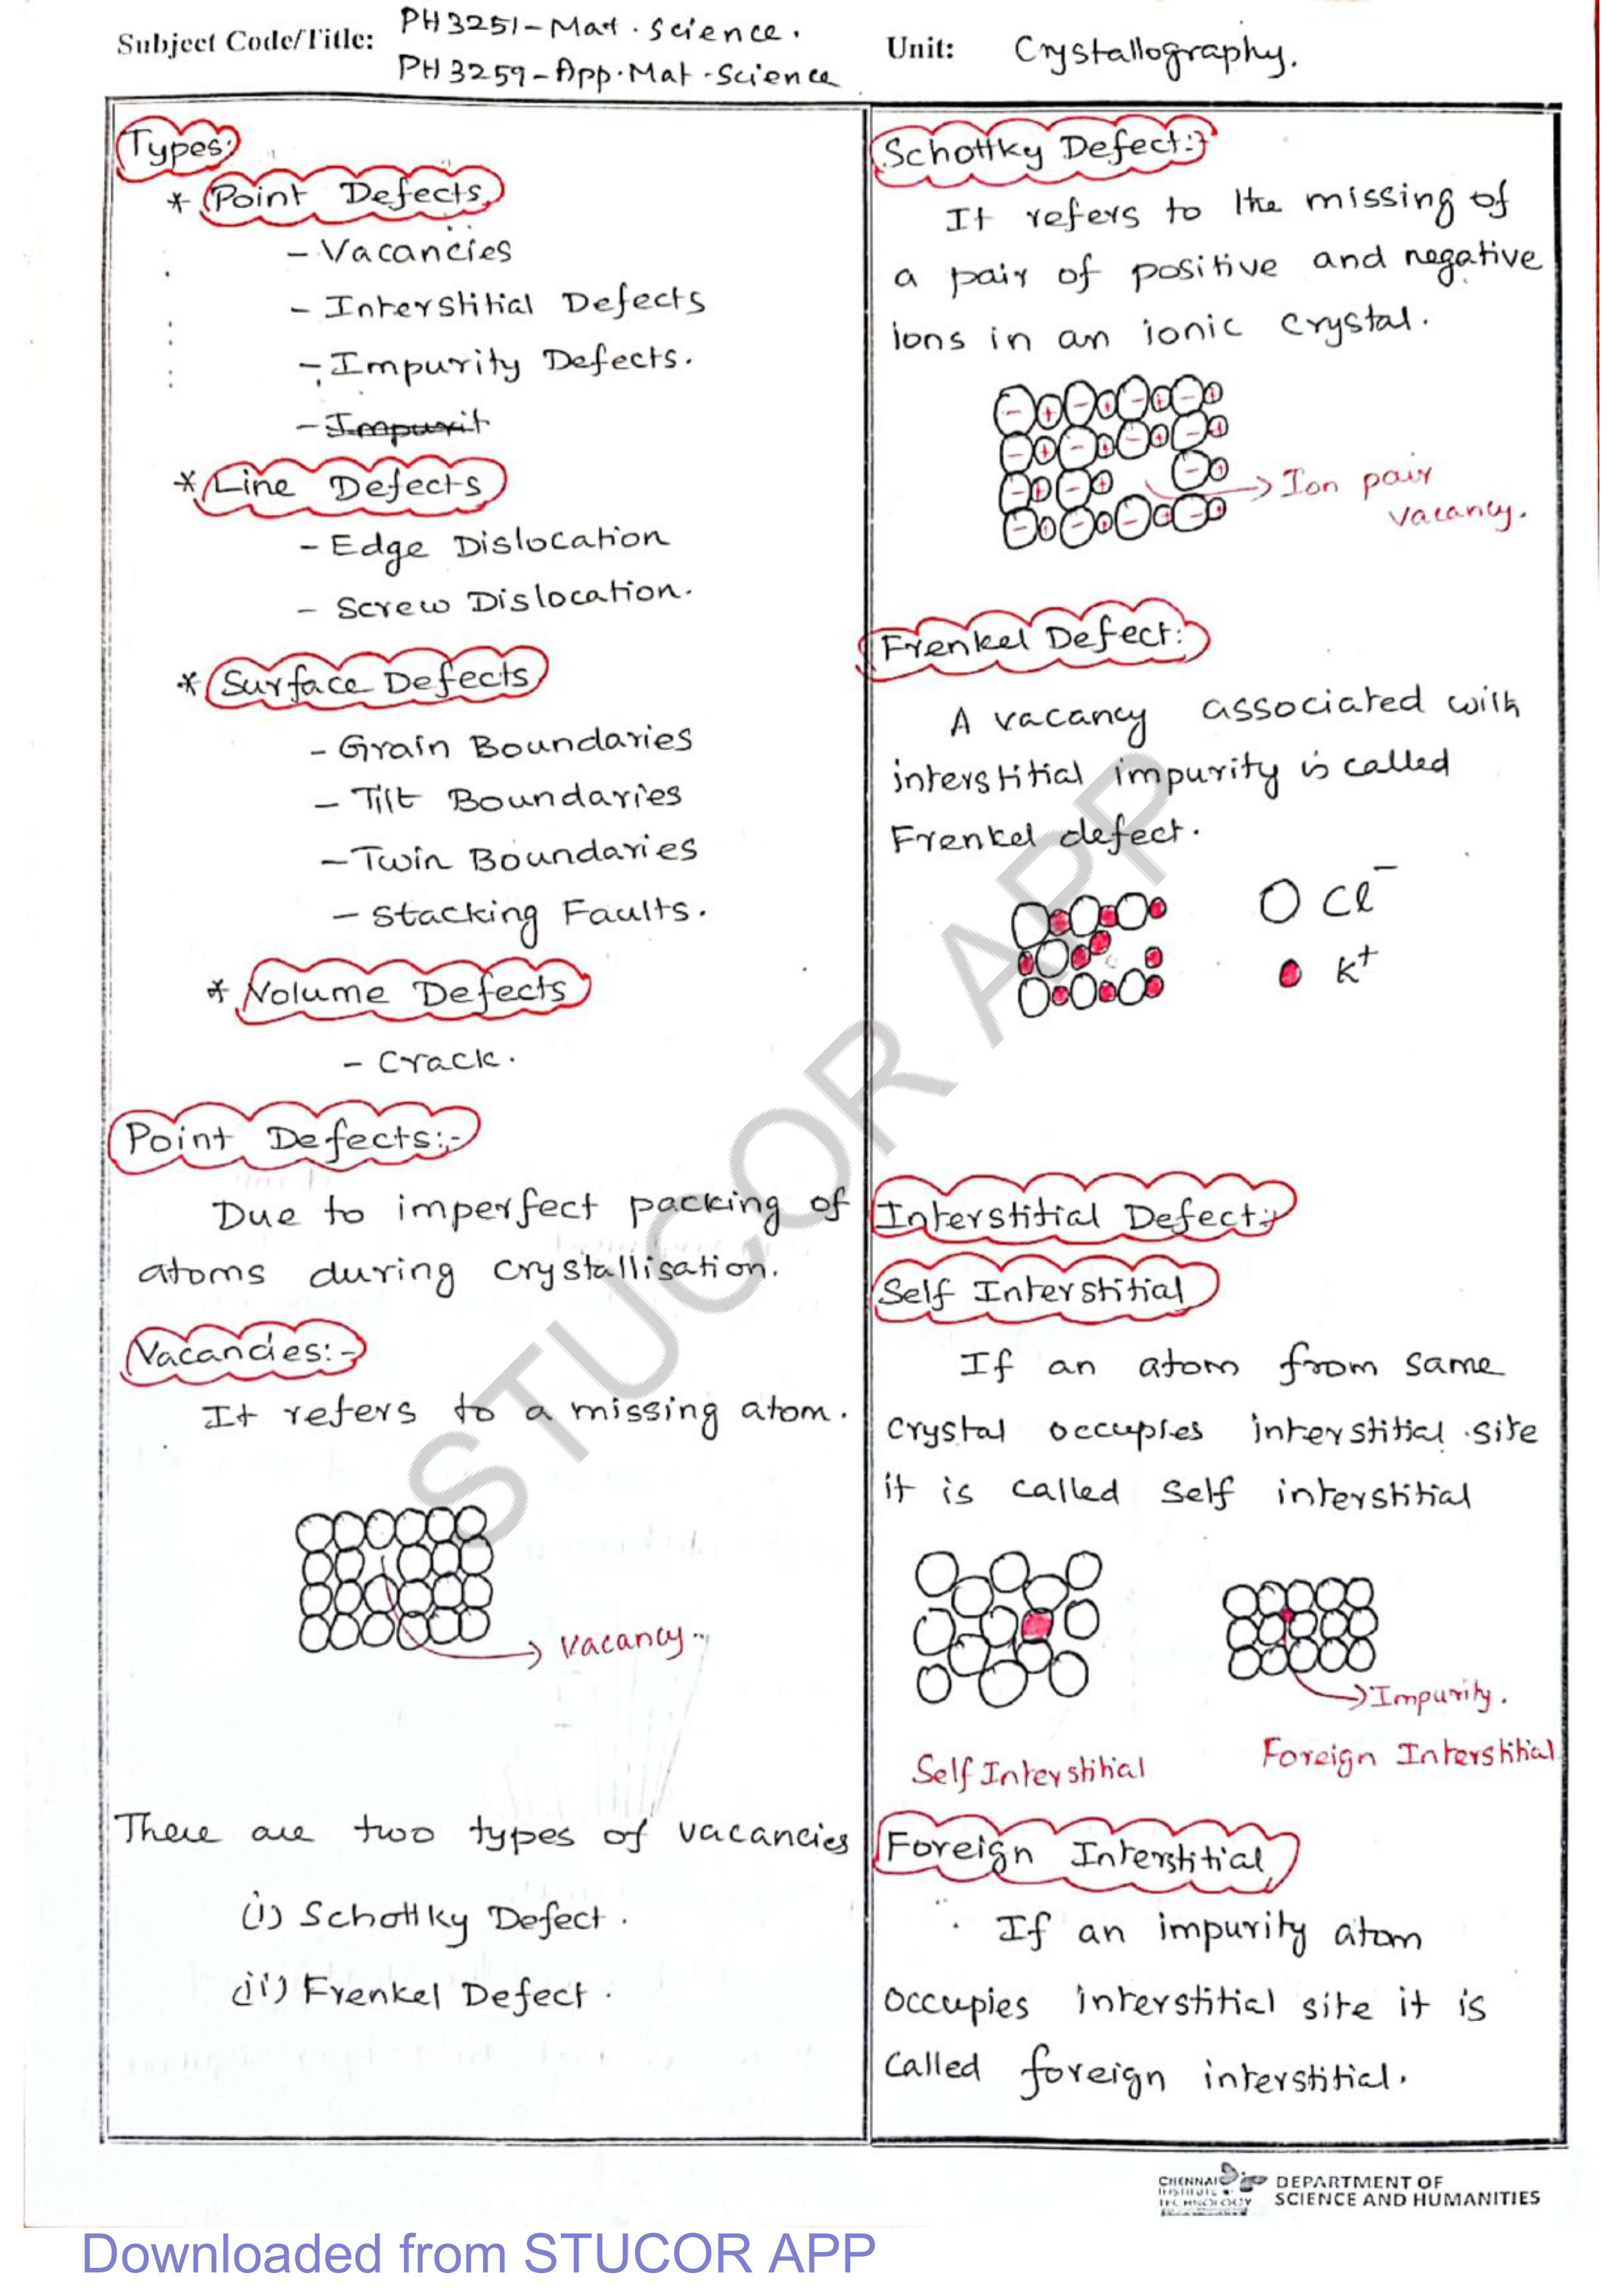 Subject Code/Title: PH3251-Mat. Science.
PH3259-App.Mat.Science
Unit: Crystallography.
Types:
* Point Defects
- Vacancies
- Interstitial Defects
- Impurity Defects.
- Impurit
* Line Defects
- Edge Dislocation
- Screw Dislocation.
* Surface Defects
- Grain Boundaries
- Tilt Boundaries
- Twin Boundaries
- Stacking Faults.
* Volume Defects
- Crack.
Point Defects:-
Due to imperfect packing of
atoms during crystallisation.
Vacancies:-
It refers to a missing atom.
Vacancy
There are two types of vacancies
(i) Schottky Defect.
(ii) Frenkel Defect.
Schottky Defect:-
It refers to the missing of
a pair of positive and negative
ions in an ionic crystal.
Ion pair
vacancy.
Frenkel Defect:
A vacancy associated with
interstitial impurity is called
Frenkel defect.
Cl⁻
K⁺
Interstitial Defect:-
Self Interstitial
If an atom from same
crystal occupies interstitial site
it is called self interstitial
Impurity.
Self Interstitial
Foreign Interstitial
Foreign Interstitial
If an impurity atom
occupies interstitial site it is
called foreign interstitial.
STUCOR APP
CHENNAI
INSTITUTE OF
TECHNOLOGY
DEPARTMENT OF
SCIENCE AND HUMANITIES
Downloaded from STUCOR APP